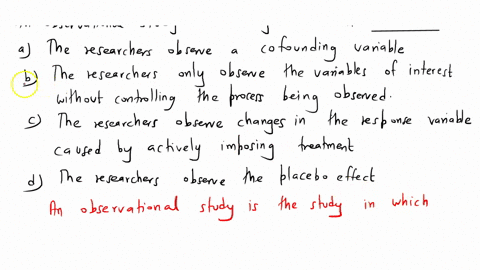 a) The researchers observe a cofounding variable
b) The researchers only observe the variables of interest
without controlling the process being observed.
c) The researchers observe changes in the response variable
caused by actively imposing treatment
d) The researchers observe the placebo effect
An observational study is the study in which